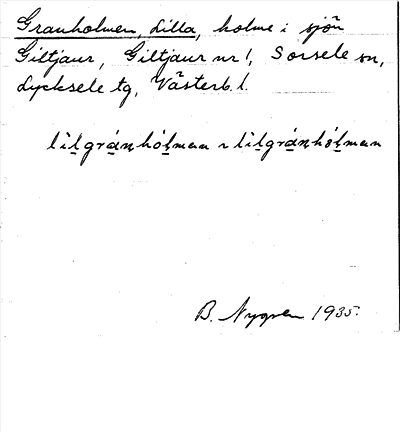 Granholmen, Lilla, holme i sjön
Giltjaur, Giltjaur nr 1, Sorsele sn,
Lycksele tg, Västerb. l.
lìlgránhólman ~ lìlgránhólman
B. Nygren 1935.